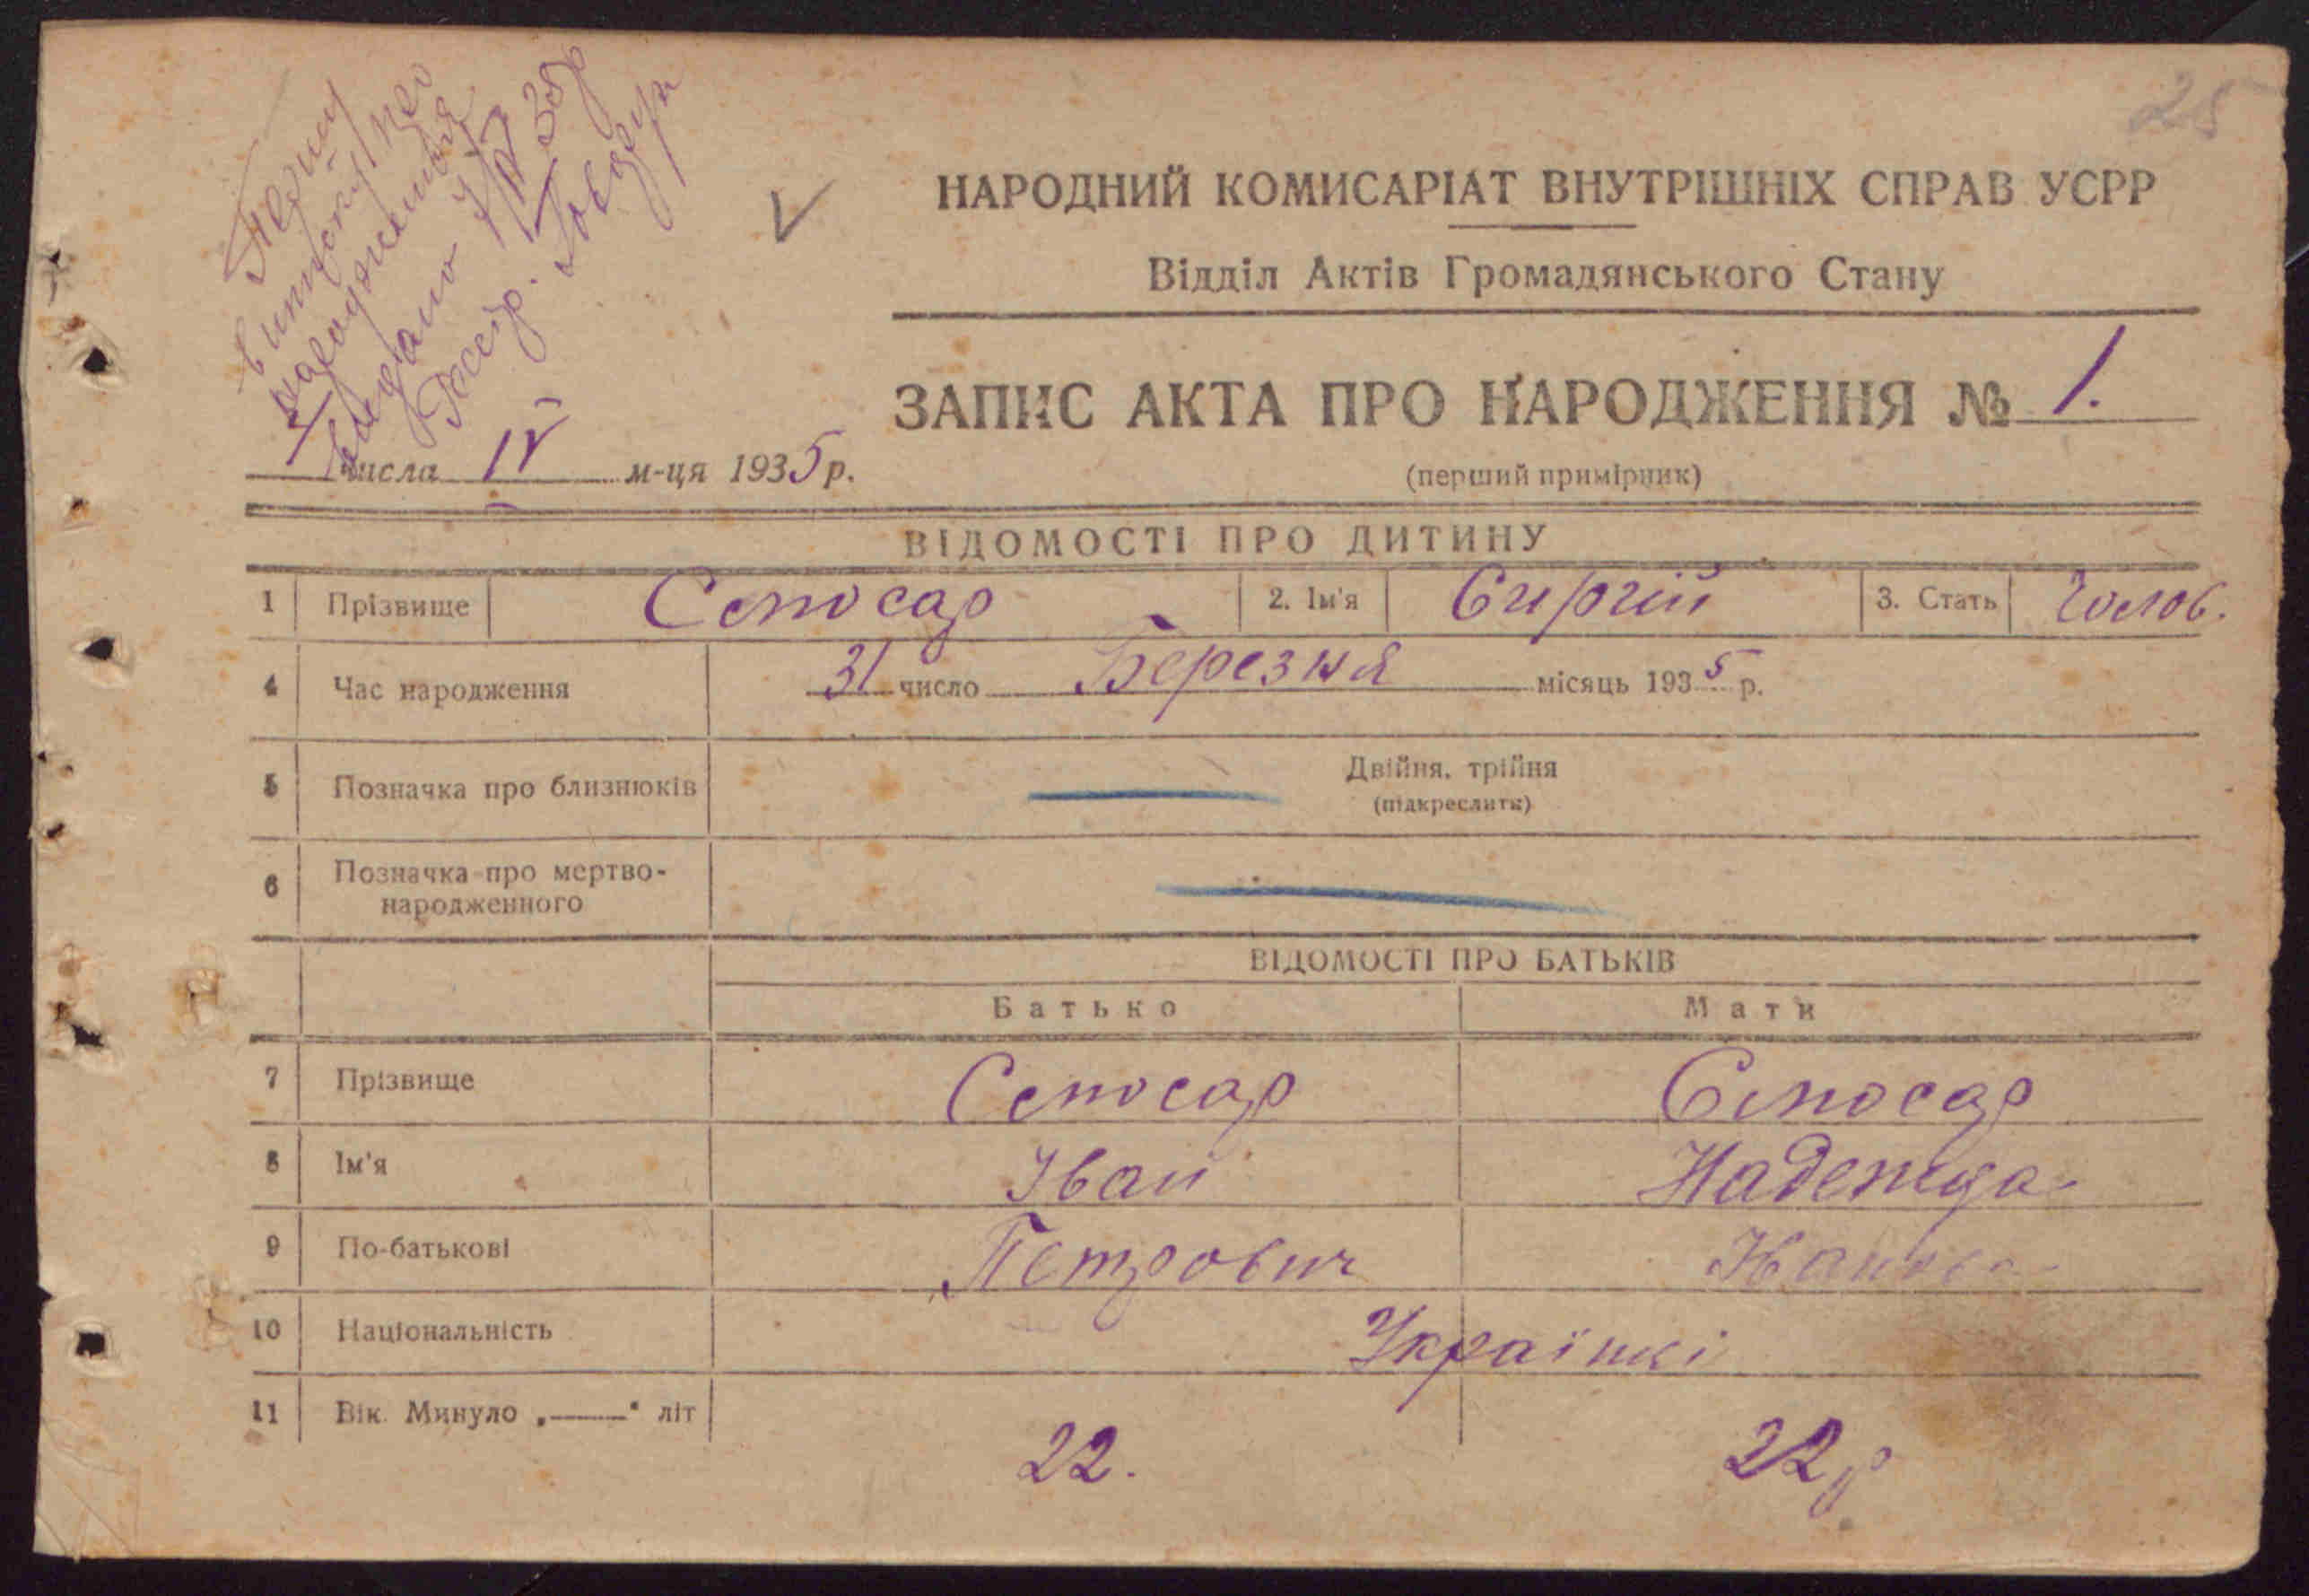 25
Першу
виписку про
народження
видано
НАРОДНИЙ КОМИСАРІАТ ВНУТРІШНІХ СПРАВ УСРР
Відділ Актів Громадянського Стану
ЗАПИС АКТА ПРО НАРОДЖЕННЯ № 1.
числа IV м-ця 1935 р.
(перший примірник)
ВІДОМОСТІ ПРО ДИТИНУ
1 Прізвище 2. Ім'я Сиргій 3. Стать Чолов.
4 Час народження 31 число Березня місяць 1935 р.
5 Позначка про близнюків Двійня, трійня
(підкреслити)
6 Позначка про мертво-
народженного
ВІДОМОСТІ ПРО БАТЬКІВ
Батько Мати
7 Прізвище
8 Ім'я Іван Надежда
9 По-батькові Петрович
10 Національність Українці
11 Вік. Минуло „—“ літ 22. 22 р